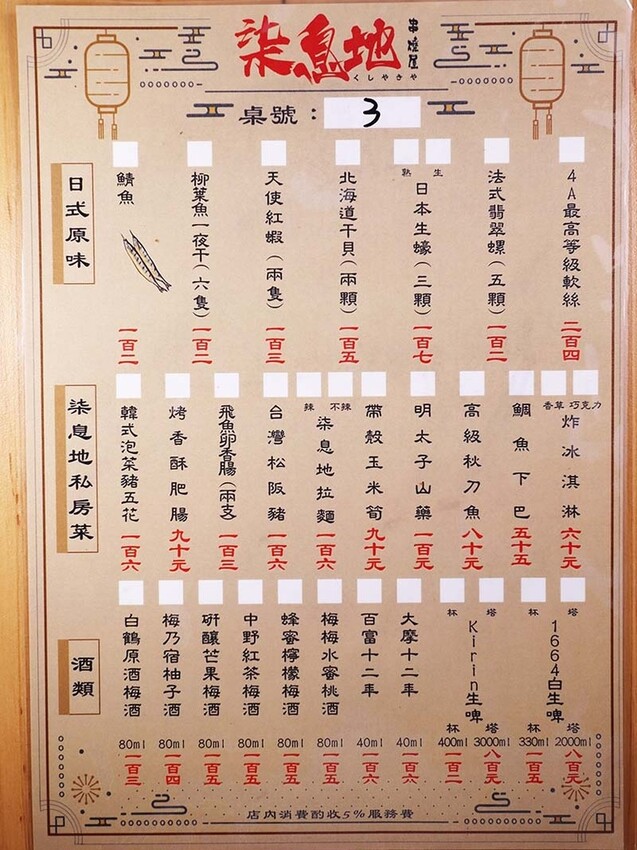 柒息地
串燒屋
くしやきや
桌號：3
日式原味
4A最高等級軟絲
二百四
法式翡翠螺（五顆）
一百二
熟 生
日本生蠔（三顆）
一百七
北海道干貝（兩顆）
一百五
天使紅蝦（兩隻）
一百三
柳葉魚一夜干（六隻）
一百二
鯖魚
一百二
柒息地私房菜
香草 巧克力
炸冰淇淋
六十元
鯛魚下巴
五十五
高級秋刀魚
八十元
明太子山藥
一百元
帶殼玉米筍
九十元
辣 不辣
柒息地拉麵
一百六
台灣松阪豬
一百六
飛魚卵香腸（兩支）
一百三
烤香酥肥腸
九十元
韓式泡菜豬五花
一百六
酒類
杯 塔
1664白生啤
杯 塔
330ml 2000ml
一百五 八百元
杯 塔
Kirin生啤
杯 塔
400ml 3000ml
一百二 八百元
大摩十二年
40ml
一百六
百富十二年
40ml
一百六
梅梅水蜜桃酒
80ml
一百五
蜂蜜檸檬梅酒
80ml
一百五
中野紅茶梅酒
80ml
一百五
研釀芒果梅酒
80ml
一百五
梅乃宿柚子酒
80ml
一百四
白鶴原酒梅酒
80ml
一百三
店內消費酌收5%服務費